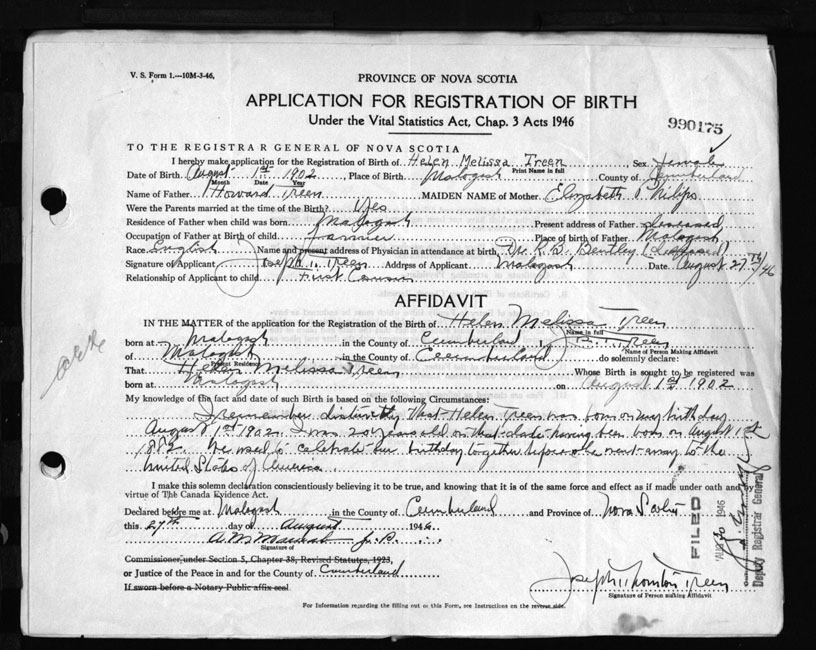 V. S. Form 1.—10M-3-46.
PROVINCE OF NOVA SCOTIA
APPLICATION FOR REGISTRATION OF BIRTH
Under the Vital Statistics Act, Chap. 3 Acts 1946
990175
TO THE REGISTRAR GENERAL OF NOVA SCOTIA
I hereby make application for the Registration of Birth of Helen Melissa Treen Sex female
Print Name in full
Date of Birth August 1st 1902 Place of Birth Malagash County of Cumberland
Month Date Year
Name of Father Howard Treen MAIDEN NAME of Mother Elizabeth Philips
Were the Parents married at the time of the Birth? Yes
Residence of Father when child was born Malagash Present address of Father deceased
Occupation of Father at Birth of child farmer Place of birth of Father Malagash
Race English Name and present address of Physician in attendance at birth Dr. Bentley (deceased)
Signature of Applicant Joseph T. Treen Address of Applicant Malagash Date August 27th/46
Relationship of Applicant to child First Cousin
AFFIDAVIT
IN THE MATTER of the application for the Registration of the Birth of Helen Melissa Treen
Name in full
born at Malagash in the County of Cumberland, I, Treen
Name of Person Making Affidavit
of Malagash in the County of Cumberland do solemnly declare:
That Helen Melissa Treen Whose Birth is sought to be registered was
born at Malagash on August 1st 1902
My knowledge of the fact and date of such Birth is based on the following Circumstances:
I remember distinctly that Helen Treen was born on my birthday
August 1st 1902. I was 20 years old on that date having been born on August 1st
1882. We used to celebrate our birthday together before she went away to the
United States of America
I make this solemn declaration conscientiously believing it to be true, and knowing that it is of the same force and effect as if made under oath and by
virtue of The Canada Evidence Act.
Declared before me at Malagash in the County of Cumberland and Province of Nova Scotia
this 27th day of August 1946
J. P.
Signature of
Commissioner, under Section 5, Chapter 38, Revised Statutes, 1923,
or Justice of the Peace in and for the County of Cumberland
If sworn before a Notary Public affix seal
Joseph Thornton Treen
Signature of Person making Affidavit
For Information regarding the filling out of this Form, see Instructions on the reverse side.
FILED
AUG 30 1946
Deputy Registrar General